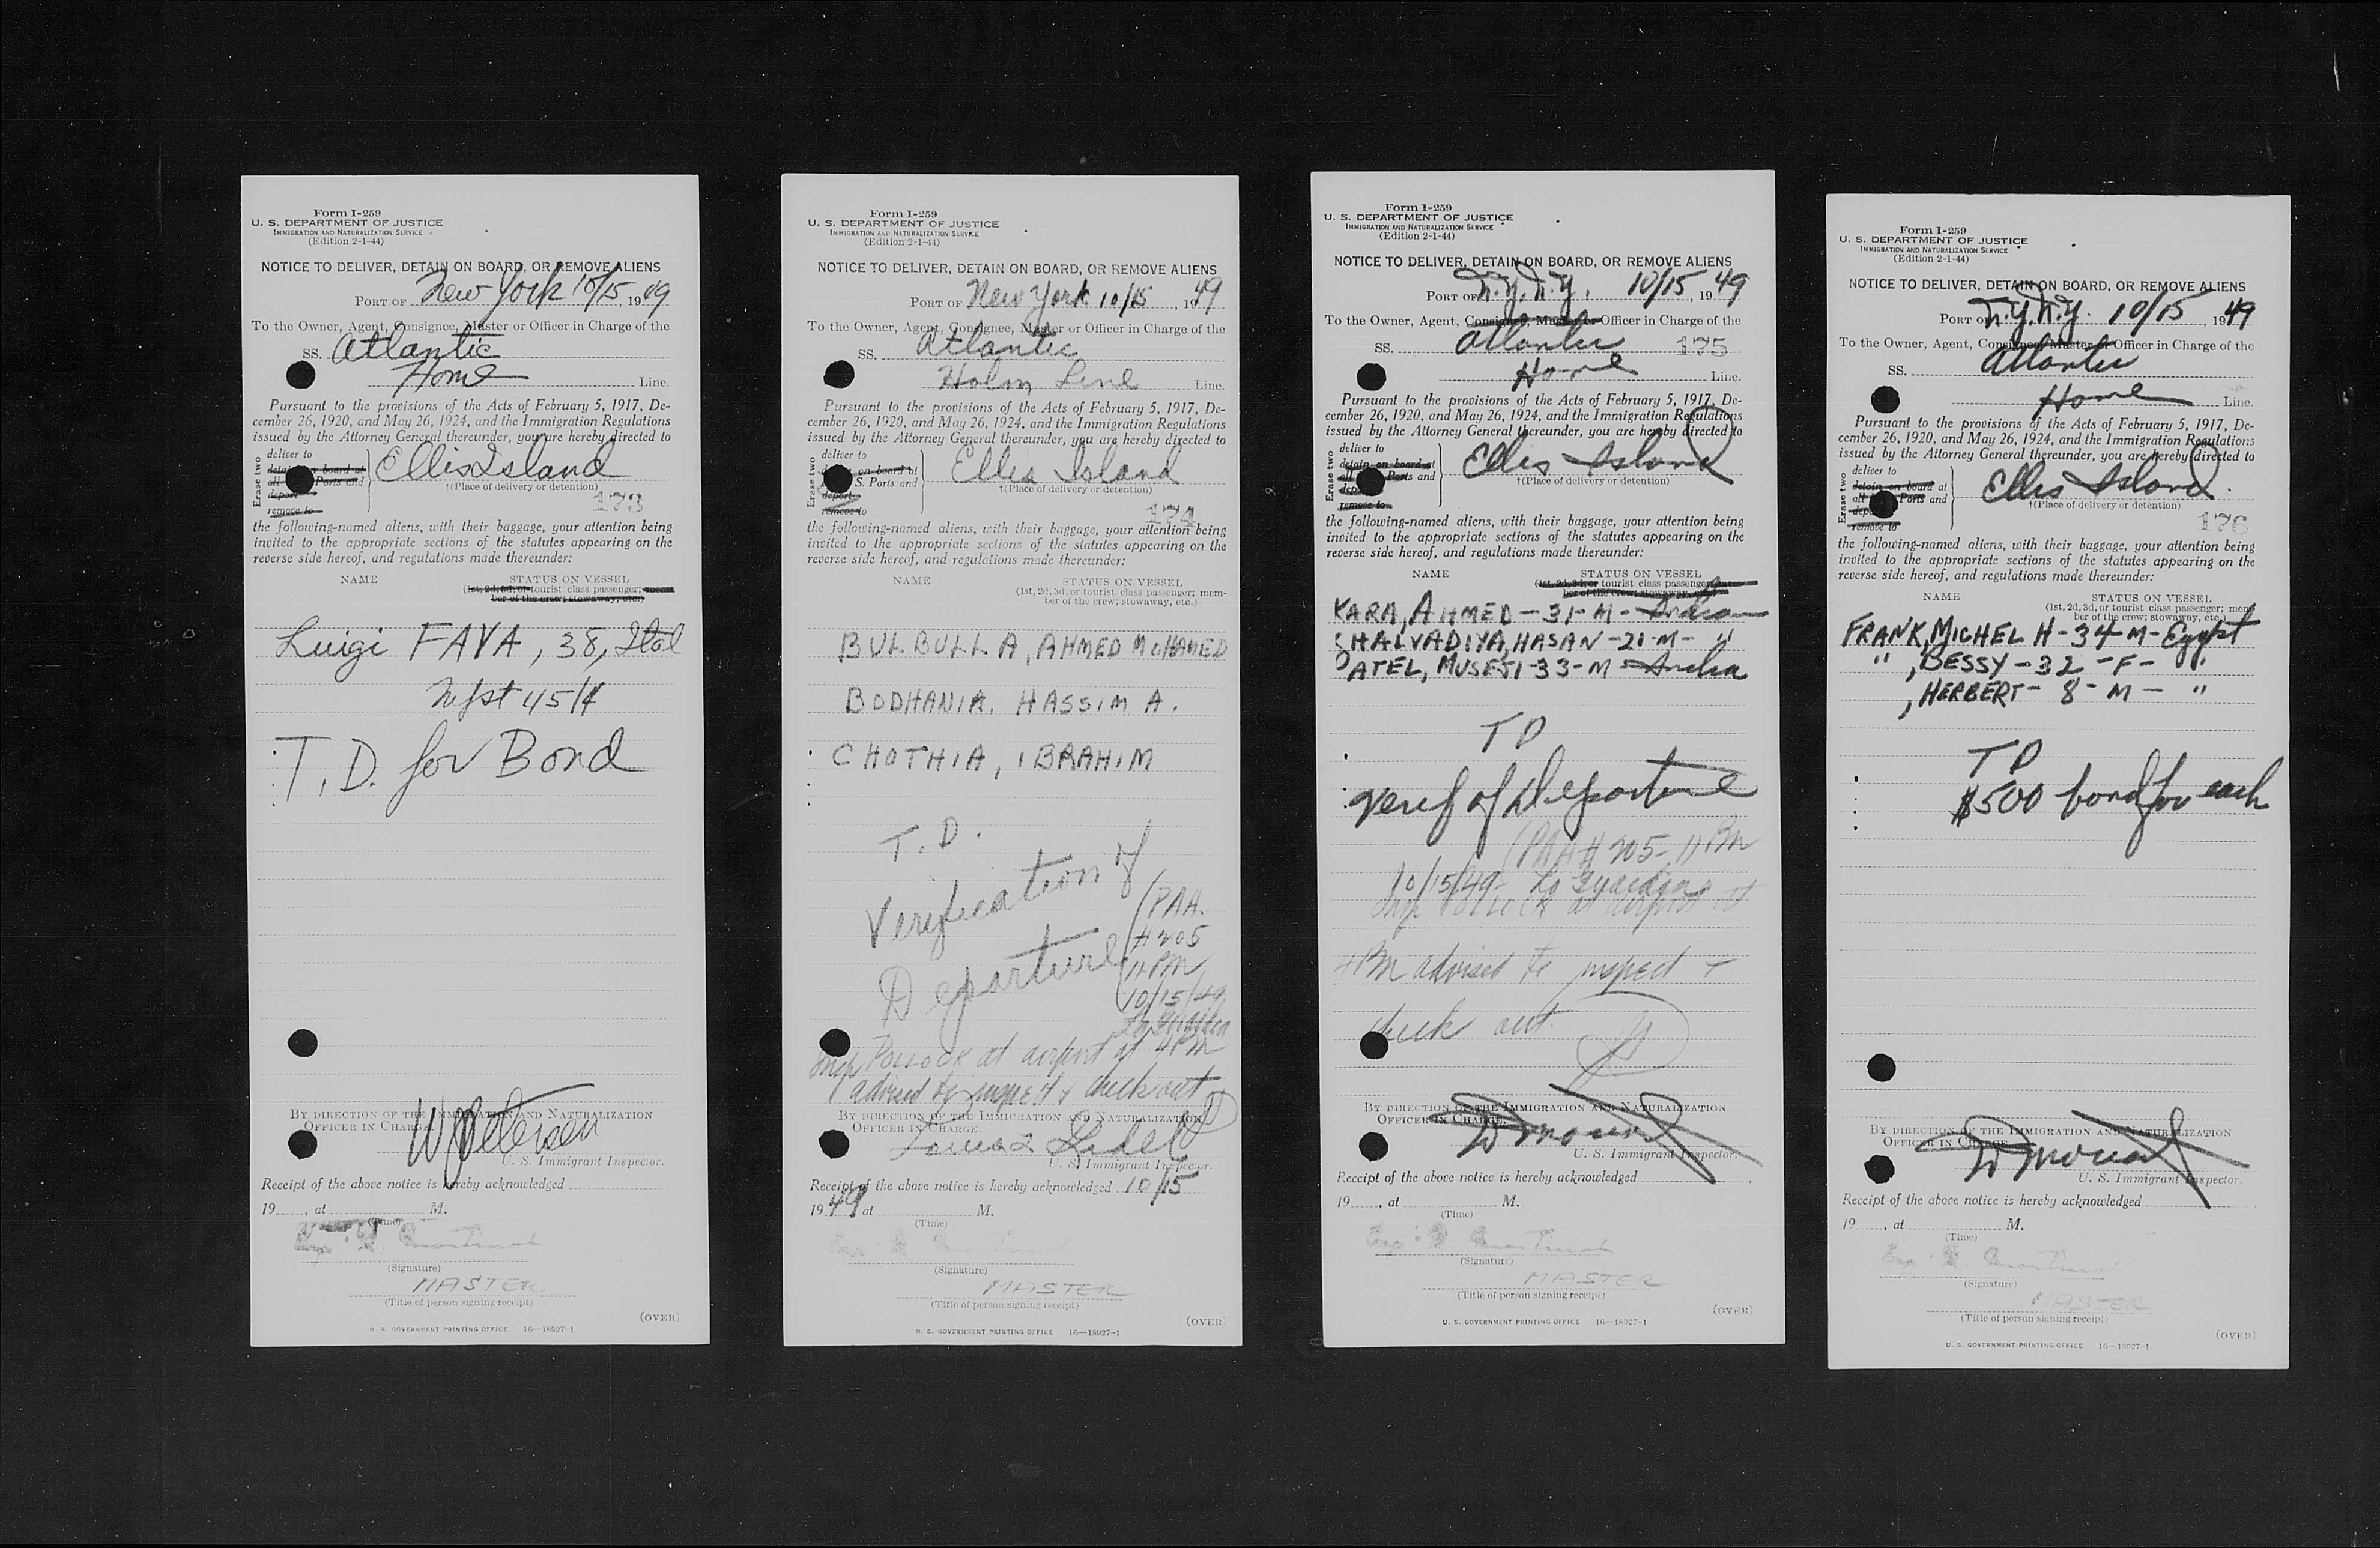 Form I-259
U. S. DEPARTMENT OF JUSTICE
IMMIGRATION AND NATURALIZATION SERVICE
(Edition 2-1-44)
NOTICE TO DELIVER, DETAIN ON BOARD, OR REMOVE ALIENS
PORT OF New York 10/15, 1949
To the Owner, Agent, Consignee, Master or Officer in Charge of the
SS. Atlantic
Home Line.
Pursuant to the provisions of the Acts of February 5, 1917, De-
cember 26, 1920, and May 26, 1924, and the Immigration Regulations
issued by the Attorney General thereunder, you are hereby directed to
Erase two
deliver to
detain on board at
all Ports and
deport
remove to
Ellis Island
†(Place of delivery or detention)
173
the following-named aliens, with their baggage, your attention being
invited to the appropriate sections of the statutes appearing on the
reverse side hereof, and regulations made thereunder:
NAME STATUS ON VESSEL
(1st, 2d, 3d, or tourist class passenger; mem-
ber of the crew; stowaway, etc.)
Luigi FAVA, 38, Ital
45/4
T.D. for Bond
BY DIRECTION OF THE IMMIGRATION AND NATURALIZATION
OFFICER IN CHARGE.
U. S. Immigrant Inspector.
Receipt of the above notice is hereby acknowledged
19 , at M.
(Time)
(Signature)
MASTER
(Title of person signing receipt)
(OVER)
U. S. GOVERNMENT PRINTING OFFICE 16—18927-1
Form I-259
U. S. DEPARTMENT OF JUSTICE
IMMIGRATION AND NATURALIZATION SERVICE
(Edition 2-1-44)
NOTICE TO DELIVER, DETAIN ON BOARD, OR REMOVE ALIENS
PORT OF New York 10/15, 1949
To the Owner, Agent, Consignee, Master or Officer in Charge of the
SS. Atlantic
Holm Line Line.
Pursuant to the provisions of the Acts of February 5, 1917, De-
cember 26, 1920, and May 26, 1924, and the Immigration Regulations
issued by the Attorney General thereunder, you are hereby directed to
Erase two
deliver to
on board at
S. Ports and
deport
remove to
Ellis Island
†(Place of delivery or detention)
174
the following-named aliens, with their baggage, your attention being
invited to the appropriate sections of the statutes appearing on the
reverse side hereof, and regulations made thereunder:
NAME STATUS ON VESSEL
(1st, 2d, 3d, or tourist class passenger; mem-
ber of the crew; stowaway, etc.)
BULBULLA, AHMED MOHAMED
BODHANIA, HASSIM A.
CHOTHIA, IBRAHIM
T.D.
Verification of
Departure
(PAA.
# 205
11 PM
10/15/49
Insp POLLOCK at airport at 4 PM
advised to inspect & check out
BY DIRECTION OF THE IMMIGRATION AND NATURALIZATION
OFFICER IN CHARGE.
U. S. Immigrant Inspector.
Receipt of the above notice is hereby acknowledged 10/15
1949 at M.
(Time)
(Signature)
MASTER
(Title of person signing receipt)
(OVER)
U. S. GOVERNMENT PRINTING OFFICE 16—18927-1
Form I-259
U. S. DEPARTMENT OF JUSTICE
IMMIGRATION AND NATURALIZATION SERVICE
(Edition 2-1-44)
NOTICE TO DELIVER, DETAIN ON BOARD, OR REMOVE ALIENS
PORT OF N.Y. N.Y. 10/15, 1949
To the Owner, Agent, Consignee, Master or Officer in Charge of the
SS. Atlantic 175
Home Line.
Pursuant to the provisions of the Acts of February 5, 1917, De-
cember 26, 1920, and May 26, 1924, and the Immigration Regulations
issued by the Attorney General thereunder, you are hereby directed to
Erase two
deliver to
detain on board at
all Ports and
dep
remove to
Ellis Island
†(Place of delivery or detention)
the following-named aliens, with their baggage, your attention being
invited to the appropriate sections of the statutes appearing on the
reverse side hereof, and regulations made thereunder:
NAME STATUS ON VESSEL
(1st, 2d, 3d, or tourist class passenger; mem-
ber of the crew; stowaway, etc.)
KARA, AHMED - 31 - M - Indian
HALVADIYA, HASAN - 21 - M - "
PATEL, MUSEJI - 33 - M - India
TD
verif of Departure
(PAA # 205 - 11 PM
10/15/49 - La Guardia
Insp POLLOCK at airport at
4 PM advised to inspect &
check out.
BY DIRECTION OF THE IMMIGRATION AND NATURALIZATION
OFFICER IN CHARGE.
U. S. Immigrant Inspector.
Receipt of the above notice is hereby acknowledged
19 , at M.
(Time)
(Signature)
MASTER
(Title of person signing receipt)
(OVER)
U. S. GOVERNMENT PRINTING OFFICE 16—18927-1
Form I-259
U. S. DEPARTMENT OF JUSTICE
IMMIGRATION AND NATURALIZATION SERVICE
(Edition 2-1-44)
NOTICE TO DELIVER, DETAIN ON BOARD, OR REMOVE ALIENS
PORT OF N.Y. N.Y. 10/15, 1949
To the Owner, Agent, Consignee, Master or Officer in Charge of the
SS. Atlantic
Home Line.
Pursuant to the provisions of the Acts of February 5, 1917, De-
cember 26, 1920, and May 26, 1924, and the Immigration Regulations
issued by the Attorney General thereunder, you are hereby directed to
Erase two
deliver to
detain on board at
all Ports and
dep
remove to
Ellis Island.
†(Place of delivery or detention)
176
the following-named aliens, with their baggage, your attention being
invited to the appropriate sections of the statutes appearing on the
reverse side hereof, and regulations made thereunder:
NAME STATUS ON VESSEL
(1st, 2d, 3d, or tourist class passenger; mem-
ber of the crew; stowaway, etc.)
FRANK, MICHEL H - 34 - M - Egypt
" , BESSY - 32 - F - "
, HERBERT - 8 - M - "
TD
$500 bond for each
BY DIRECTION OF THE IMMIGRATION AND NATURALIZATION
OFFICER IN CHARGE
U. S. Immigrant Inspector.
Receipt of the above notice is hereby acknowledged
19 , at M.
(Time)
(Signature)
MASTER
(Title of person signing receipt)
(OVER)
U. S. GOVERNMENT PRINTING OFFICE 16—18927-1